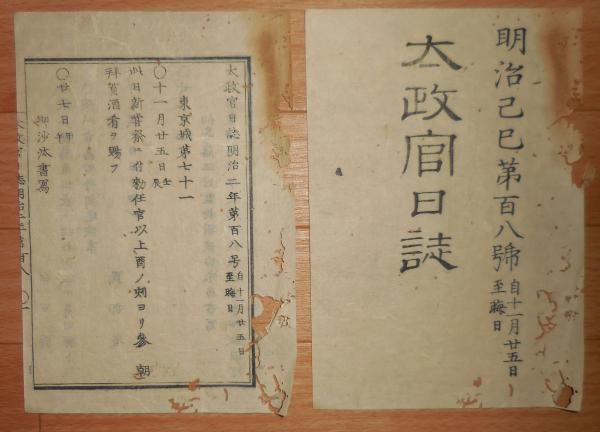 明治己巳第百八號 自十一月廿五日至晦日
太政官日誌
太政官日誌明治二年第百八号 自十一月廿五日至晦日
東京城第七十一
〇十一月廿五日 壬辰
此日新嘗祭ニ付勅任官以上酉ノ刻ヨリ參 朝
拜賀酒肴ヲ賜フ
〇廿七日 甲午
御沙汰書寫